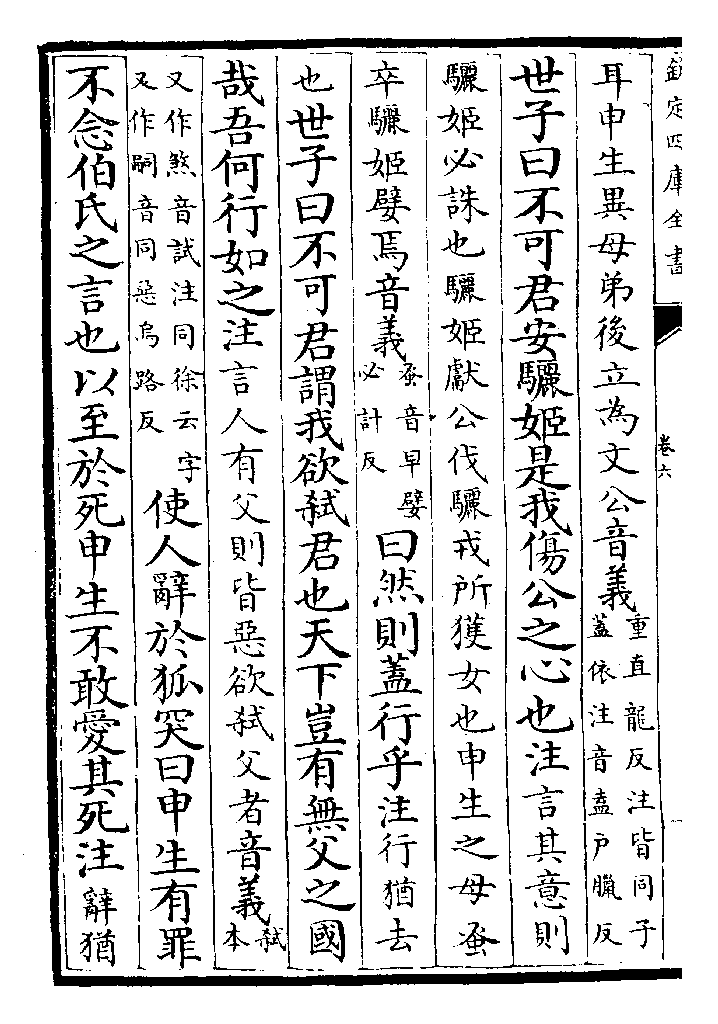 欽定四庫全書
卷六
耳申生異母弟後立為文公音義重直龍反注皆同子蓋依注音盍户臘反
世子曰不可君安驪姬是我傷公之心也注言其意則
驪姬必誅也驪姬獻公伐驪戎所獲女也申生之母蚤
卒驪姬嬖焉音義蚤音早嬖必計反曰然則蓋行乎注行猶去
也世子曰不可君謂我欲弑君也天下豈有無父之國
哉吾何行如之注言人有父則皆惡欲弑父者音義弑本
又作煞音試注同徐云字又作嗣音同惡烏路反使人辭於狐突曰申生有罪
不念伯氏之言也以至於死申生不敢愛其死注辭猶